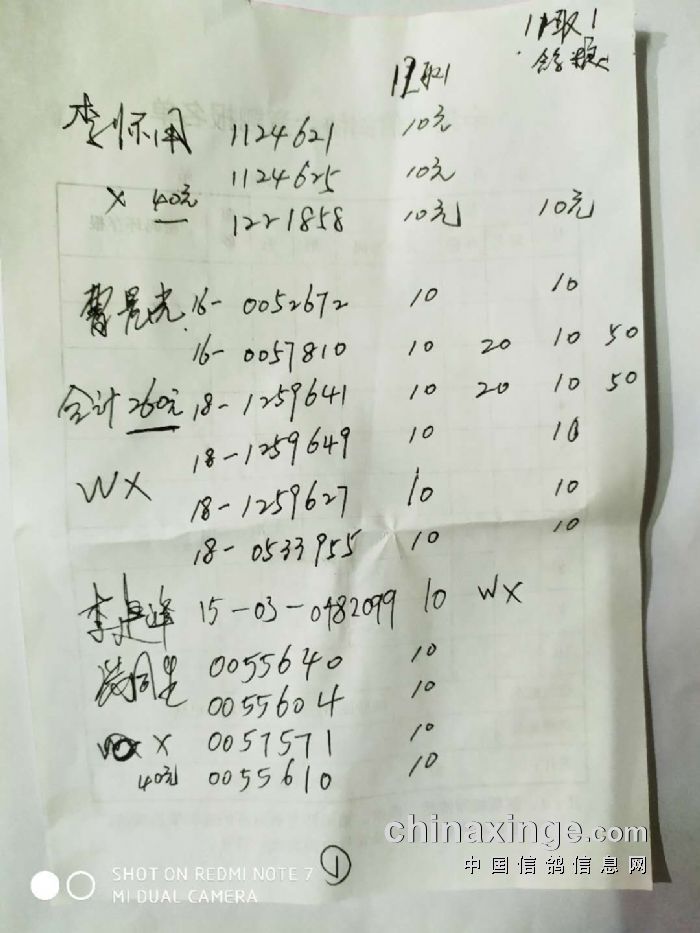 11取1
12取1 鸽粮
李怀国 1124621 10元
1124625 10元
X 40元 1221858 10元 10元
曹景光 16-0052672 10 10
16-0057810 10 20 10 50
合计260元 18-1259641 10 20 10 50
18-1259649 10 10
WX 18-1259627 10 10
18-0533955 10 10
李 峰 15-03-0482099 10 WX
0055640 10
0055604 10
X 0057571 10
40元 0055610 10
①
chinaxinge.com
中国信鸽信息网
SHOT ON REDMI NOTE 7
MI DUAL CAMERA